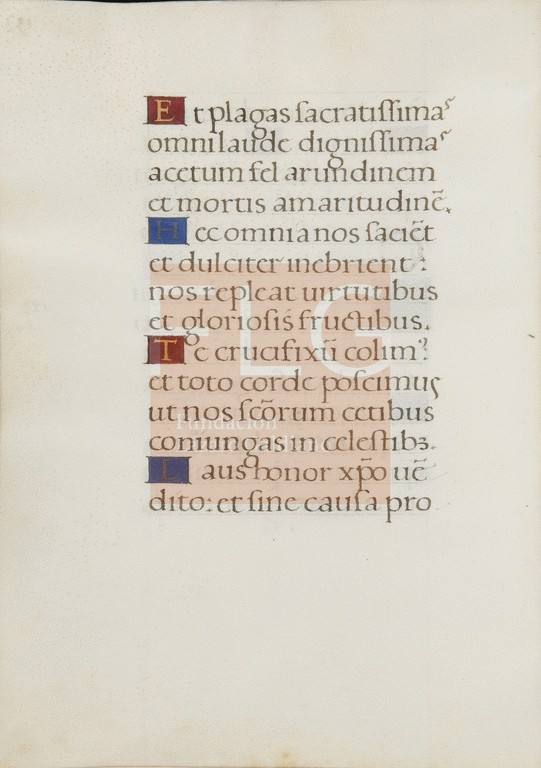 Et plagas sacratissimas
omni laude dignissimas
acetum fel arundinem
et mortis amaritudinē.
Hec omnia nos saciēt
et dulciter inebrient :
nos repleat uirtutibus
et gloriosis fructibus.
Te crucifixū colim⁹
et toto corde poscimus
ut nos scōrum cetibus
coniungas in celestibꝫ.
Laus honor xp̄o uē
dito: et sine causa pro
FLG
Fundación